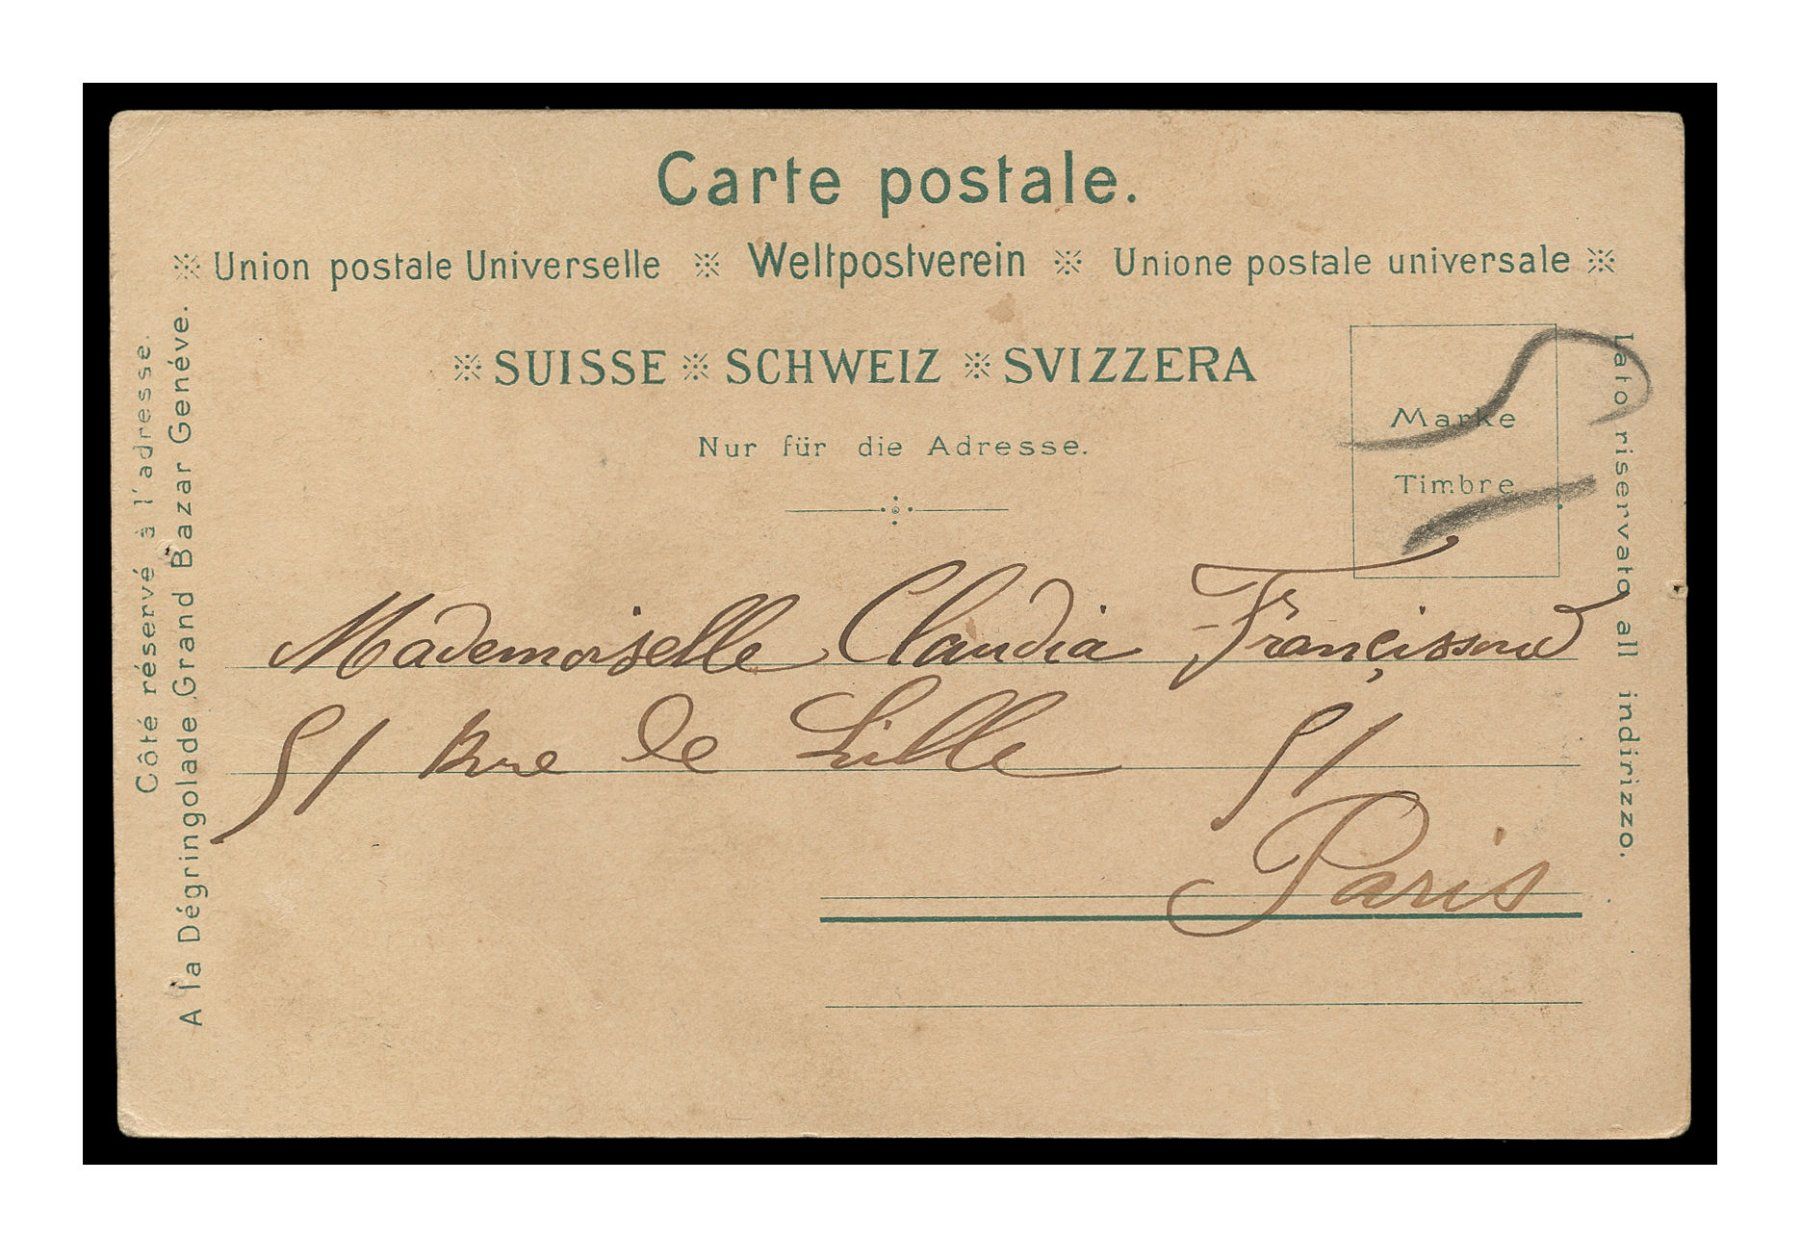 Carte postale.
Union postale Universelle Weltpostverein Unione postale universale
SUISSE SCHWEIZ SVIZZERA
Nur für die Adresse.
Marke
Timbre
Côté réservé à l'adresse.
A la Dégringolade Grand Bazar Genéve.
Lato riservato all indirizzo.
Mademoiselle Claudia
51 Rue de Lille 51
Paris